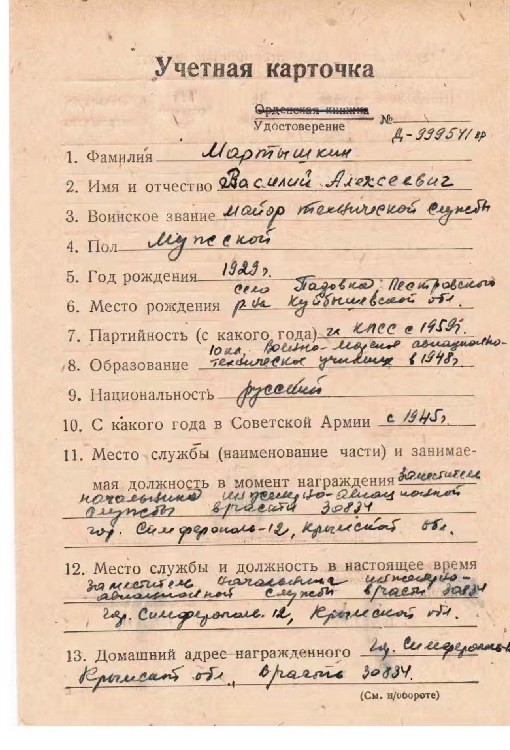 Учетная карточка
Орденская книжка
Удостоверение № Д-999541
1. Фамилия Мартышкин
2. Имя и отчество Василий Алексеевич
3. Воинское звание майор технической службы
4. Пол Мужской
5. Год рождения 1929г.
село Падовка Пестровского
6. Место рождения р-на Куйбышевской обл.
7. Партийность (с какого года) чл КПСС с 1959г.
10 кл. Военно-морское авиационно-
8. Образование техническое училище в 1948г
9. Национальность русский
10. С какого года в Советской Армии с 1945г.
11. Место службы (наименование части) и занимае-
мая должность в момент награждения Заместитель
начальника инженерно-авиационной
службы в/части 30834
гор. Симферополь-12, Крымской обл.
12. Место службы и должность в настоящее время
Заместитель начальника инженерно-
авиационной службы в/части 30834
гор. Симферополь-12, Крымской обл.
13. Домашний адрес награжденного гор. Симферополь
Крымской обл., в/часть 30834.
(См. н/обороте)